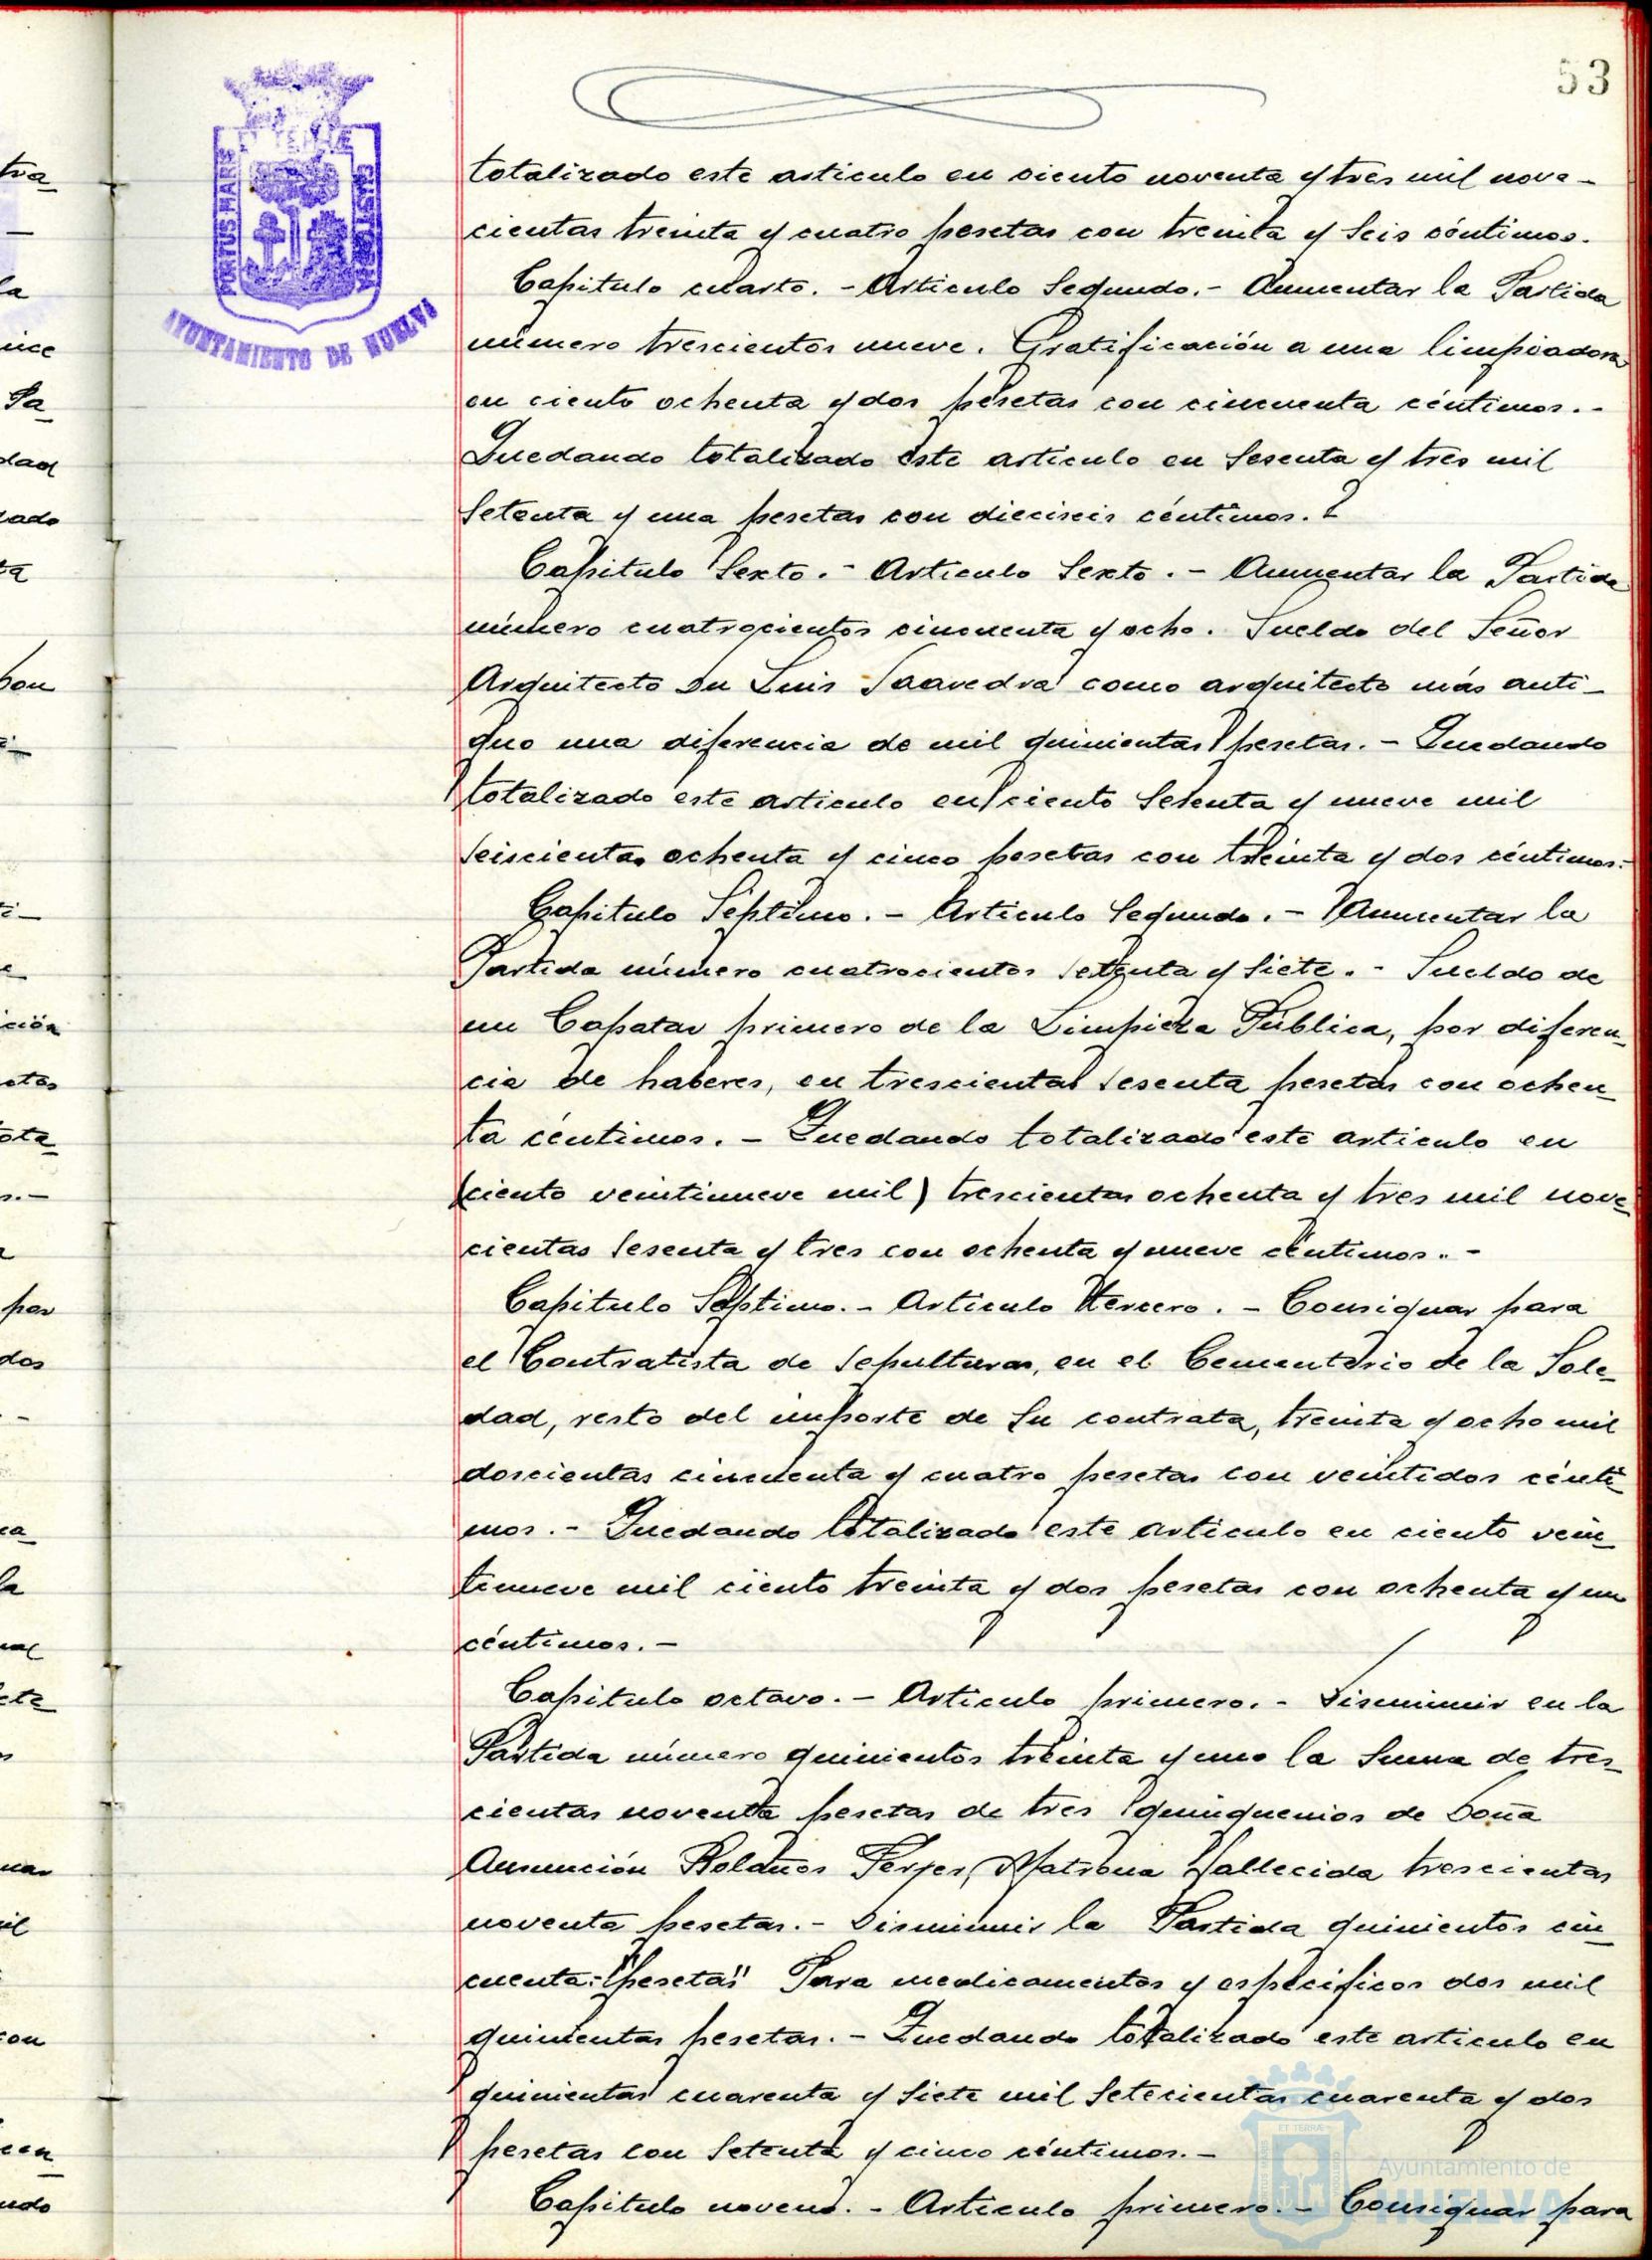 53
PORTUS MARIS ET TERRAE CUSTODIA
AYUNTAMIENTO DE HUELVA
totalizado este articulo en ciento noventa y tres mil nove-
cientas treinta y cuatro pesetas con treinta y seis céntimos.
Capitulo cuarto. - Articulo Segundo. - Aumentar la Partida
número trescientos nueve. Gratificación a una limpiadora
en ciento ochenta y dos pesetas con cincuenta céntimos. -
Quedando totalizado este articulo en Sesenta y tres mil
Setenta y una pesetas con dieciseis céntimos.
Capitulo Sexto. - Articulo Sexto. - Aumentar la Partida
número cuatrocientos cincuenta y ocho. Sueldo del Señor
Arquitecto Dn Luis Saavedra como arquitecto más anti-
guo una diferencia de mil quinientas pesetas. - Quedando
totalizado este articulo en ciento Setenta y nueve mil
seiscientas ochenta y cinco pesetas con treinta y dos céntimos. -
Capitulo Séptimo. - Articulo Segundo. - Aumentar la
Partida número cuatrocientos setenta y Siete. - Sueldo de
un Capataz primero de la Limpieza Pública, por diferen-
cia de haberes, en trescientas sesenta pesetas con ochen-
ta céntimos. - Quedando totalizado este articulo en
(ciento veintinueve mil) trescientas ochenta y tres mil nove-
cientas Sesenta y tres con ochenta y nueve céntimos. -
Capitulo Séptimo. - Articulo tercero. - Consignar para
el Contratista de Sepulturas, en el Cementerio de la Sole-
dad, resto del importe de Su contrata, treinta y ocho mil
doscientas cincuenta y cuatro pesetas con veintidos cénti-
mos. - Quedando totalizado este articulo en ciento vein-
tinueve mil ciento treinta y dos pesetas con ochenta y un
céntimos. -
Capitulo octavo. - Articulo primero. - Disminuir en la
Partida número quinientos treinta y uno la Suma de tres-
cientas noventa pesetas de tres quinquenios de Doña
Asunción Bolaños Ferrer, Matrona fallecida trescientas
noventa pesetas. - Disminuir la Partida quinientos cin-
cuenta: "pesetas" Para medicamentos y específicos dos mil
quinientas pesetas. - Quedando totalizado este articulo en
quinientas cuarenta y Siete mil Setecientas cuarenta y dos
pesetas con Setenta y cinco céntimos. -
Capitulo noveno. - Articulo primero. - Consignar para
Ayuntamiento de
HUELVA